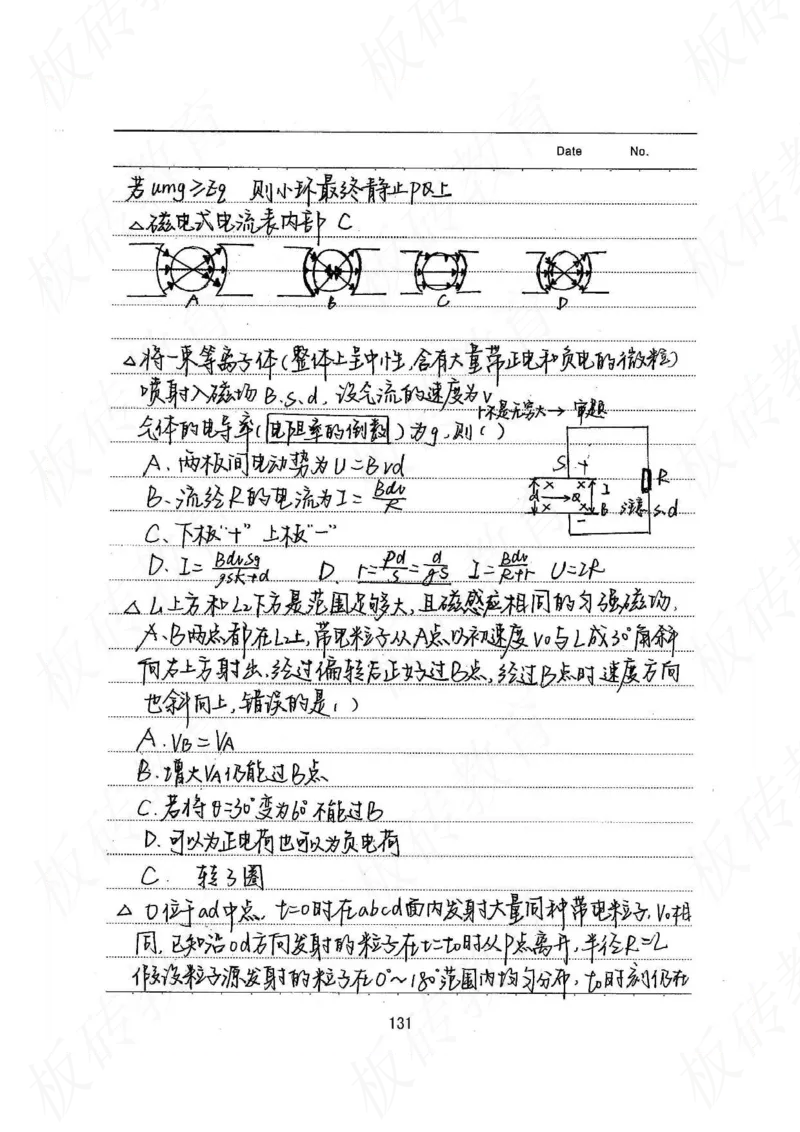 Date No.
若umg≥Eq 则小环最终静止PQ上
△磁电式电流表内部 C
A B C D
△将一束等离子体(整体上呈中性,含有大量带正电和负电的微粒)
喷射入磁场 B.s.d,设气流的速度为v
r不是无穷大→ 审题
气体的电导率(电阻率的倒数)为g,则( )
A、两板间电动势为U=Bvd
B、流经R的电流为I=Bdv/R
C、下板"+" 上板"-"
S + R I d Q B - 注意s.d
D. I=BdvSg/gSR+d D. r=ρd/S=d/gS I=Bdv/R+r U=IR
△L1上方和L2下方是范围足够大,且磁感应相同的匀强磁场,
A、B两点都在L2上,带电粒子从A点以初速度V0与L成30°角斜
向右上方射出,经过偏转后正好过B点,经过B点时速度方向
也斜向上,错误的是( )
A.VB=VA
B.增大VA仍能过B点
C.若将θ=30°变为60°不能过B
D.可以为正电荷也可以为负电荷
C. 转了圈
△ O位于ad中点,t=0时在abcd面内发射大量同种带电粒子,V0相
同,已知沿od方向发射的粒子在t=t0时从P点离开,半径R=L
假设粒子源发射的粒子在0°~180°范围内均匀分布,t0时刻仍在
131
板砖教育